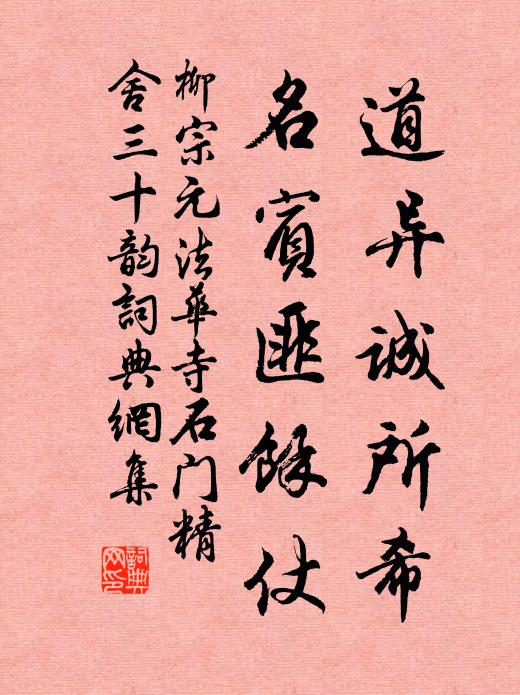 道异诚所希
名賓匪餘仗
柳宗元法華寺石门精
舍三十韵詞典網集
詞典
网印